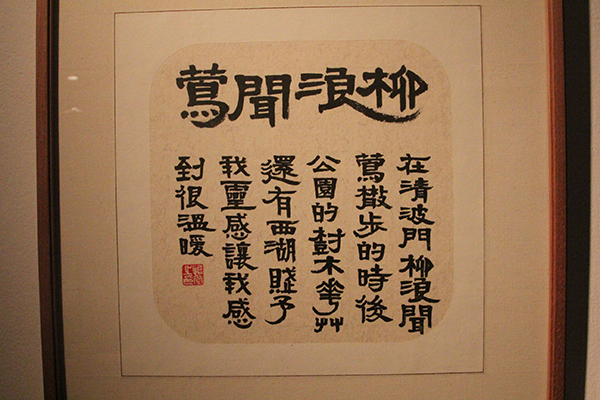 柳浪聞鶯
在清波門柳浪聞
鶯散步的時後
公園的樹木花艸
還有西湖賤予
我靈感讓我感
到很溫暖